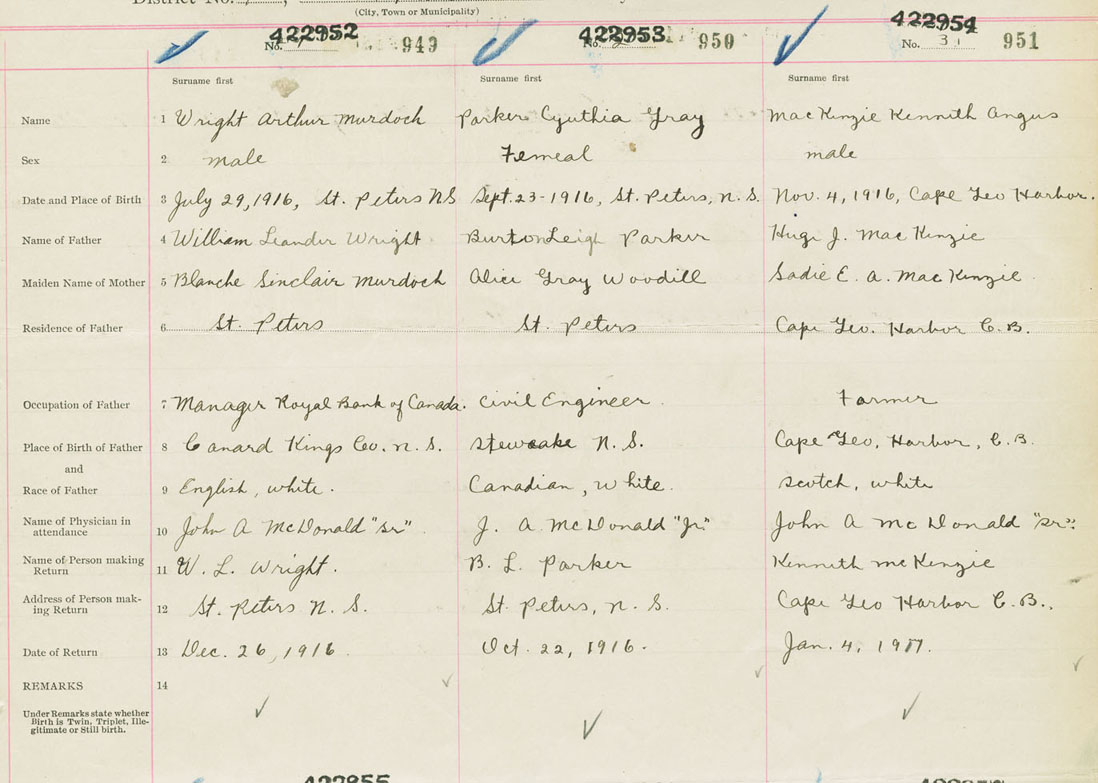 District No.
(City, Town or Municipality)
422952 422953 422954
No. 949 No. 950 No. 3 951
Surname first Surname first Surname first
Name 1 Wright Arthur Murdoch Parker Cynthia Gray MacKinzie Kennith Angus
Sex 2 male Femeal male
Date and Place of Birth 3 July 29, 1916, St. Peters NS Sept. 23-1916, St. Peters, N.S. Nov. 4, 1916, Cape Geo Harbor.
Name of Father 4 William Leander Wright Burton Leigh Parker Hugi J. MacKinzie
Maiden Name of Mother 5 Blanche Sinclair Murdoch Alice Gray Woodill Sadie E. A. MacKinzie
Residence of Father 6 St. Peters St. Peters Cape Geo. Harbor C.B.
Occupation of Father 7 Manager Royal Bank of Canada. Civil Engineer Farmer
Place of Birth of Father 8 Canard Kings Co. N.S. Stewcake N.S. Cape Geo. Harbor, C.B.
and
Race of Father 9 English, white. Canadian, white. Scotch, white
Name of Physician in attendance 10 John A McDonald "sr" J. A McDonald "Jr" John A McDonald "sr".
Name of Person making Return 11 W. L. Wright. B. L. Parker Kennith McKenzie
Address of Person making Return 12 St. Peters N.S. St. Peters, N.S. Cape Geo Harbor C.B.
Date of Return 13 Dec. 26, 1916 Oct. 22, 1916. Jan. 4, 1917.
REMARKS 14
Under Remarks state whether
Birth is Twin, Triplet, Ille-
gitimate or Still birth.
422955